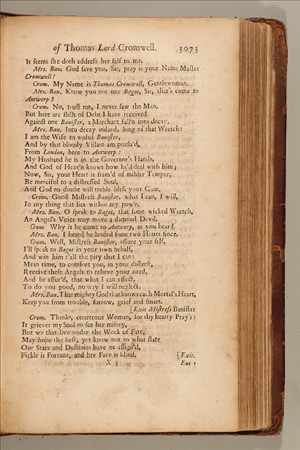 of Thomas Lord Cromwell. 3073
It seems she doth address her self to me.
Mrs. Ban. God save you, Sir, pray is your Name Master
Cromwell?
Crom. My Name is Thomas Cromwell, Gentlewoman.
Mrs. Ban. Know you not one Bagot, Sir, that's come to
Antwerp?
Crom. No, trust me, I never saw the Man,
But here are Bills of Debt I have received
Against one Banister, a Merchant fall'n into decay.
Mrs. Ban. Into decay indeed, long of that Wretch:
I am the Wife to woful Banister,
And by that bloody Villain am pursu'd,
From London, here to Antwerp:
My Husband he is in the Governor's Hands,
And God of Heav'n knows how he'll deal with him;
Now, Sir, your Heart is fram'd of milder Temper,
Be merciful to a distressed Soul,
And God no doubt will treble bless your Gain.
Crom. Good Mistress Banister, what I can, I will,
In any thing that lies within my pow'r.
Mrs. Ban. O speak to Bagot, that same wicked Wretch,
An Angel's Voice may move a damned Devil.
Crom. Why is he come to Antwerp, as you hear?
Mrs. Ban. I heard he landed some two Hours since.
Crom. Well, Mistress Banister, assure your self,
I'll speak to Bagot in your own behalf,
And win him t'all the pity that I can:
Mean time, to comfort you, in your distress,
Receive these Angels to relieve your need,
And be assur'd, that what I can effect,
To do you good, no way I will neglect.
Mrs. Ban. That mighty God that knows each Mortal's Heart,
Keep you from trouble, sorrow, grief and smart.
[Exit Mistress Banister
Crom. Thanks, courteous Woman, for thy hearty Pray'r:
It grieves my Soul to see her misery,
But we that live under the Work of Fate,
May hope the best, yet know not to what state
Our Stars and Destinies have us assign'd,
Fickle is Fortune, and her Face is blind. [Exit.
X 3